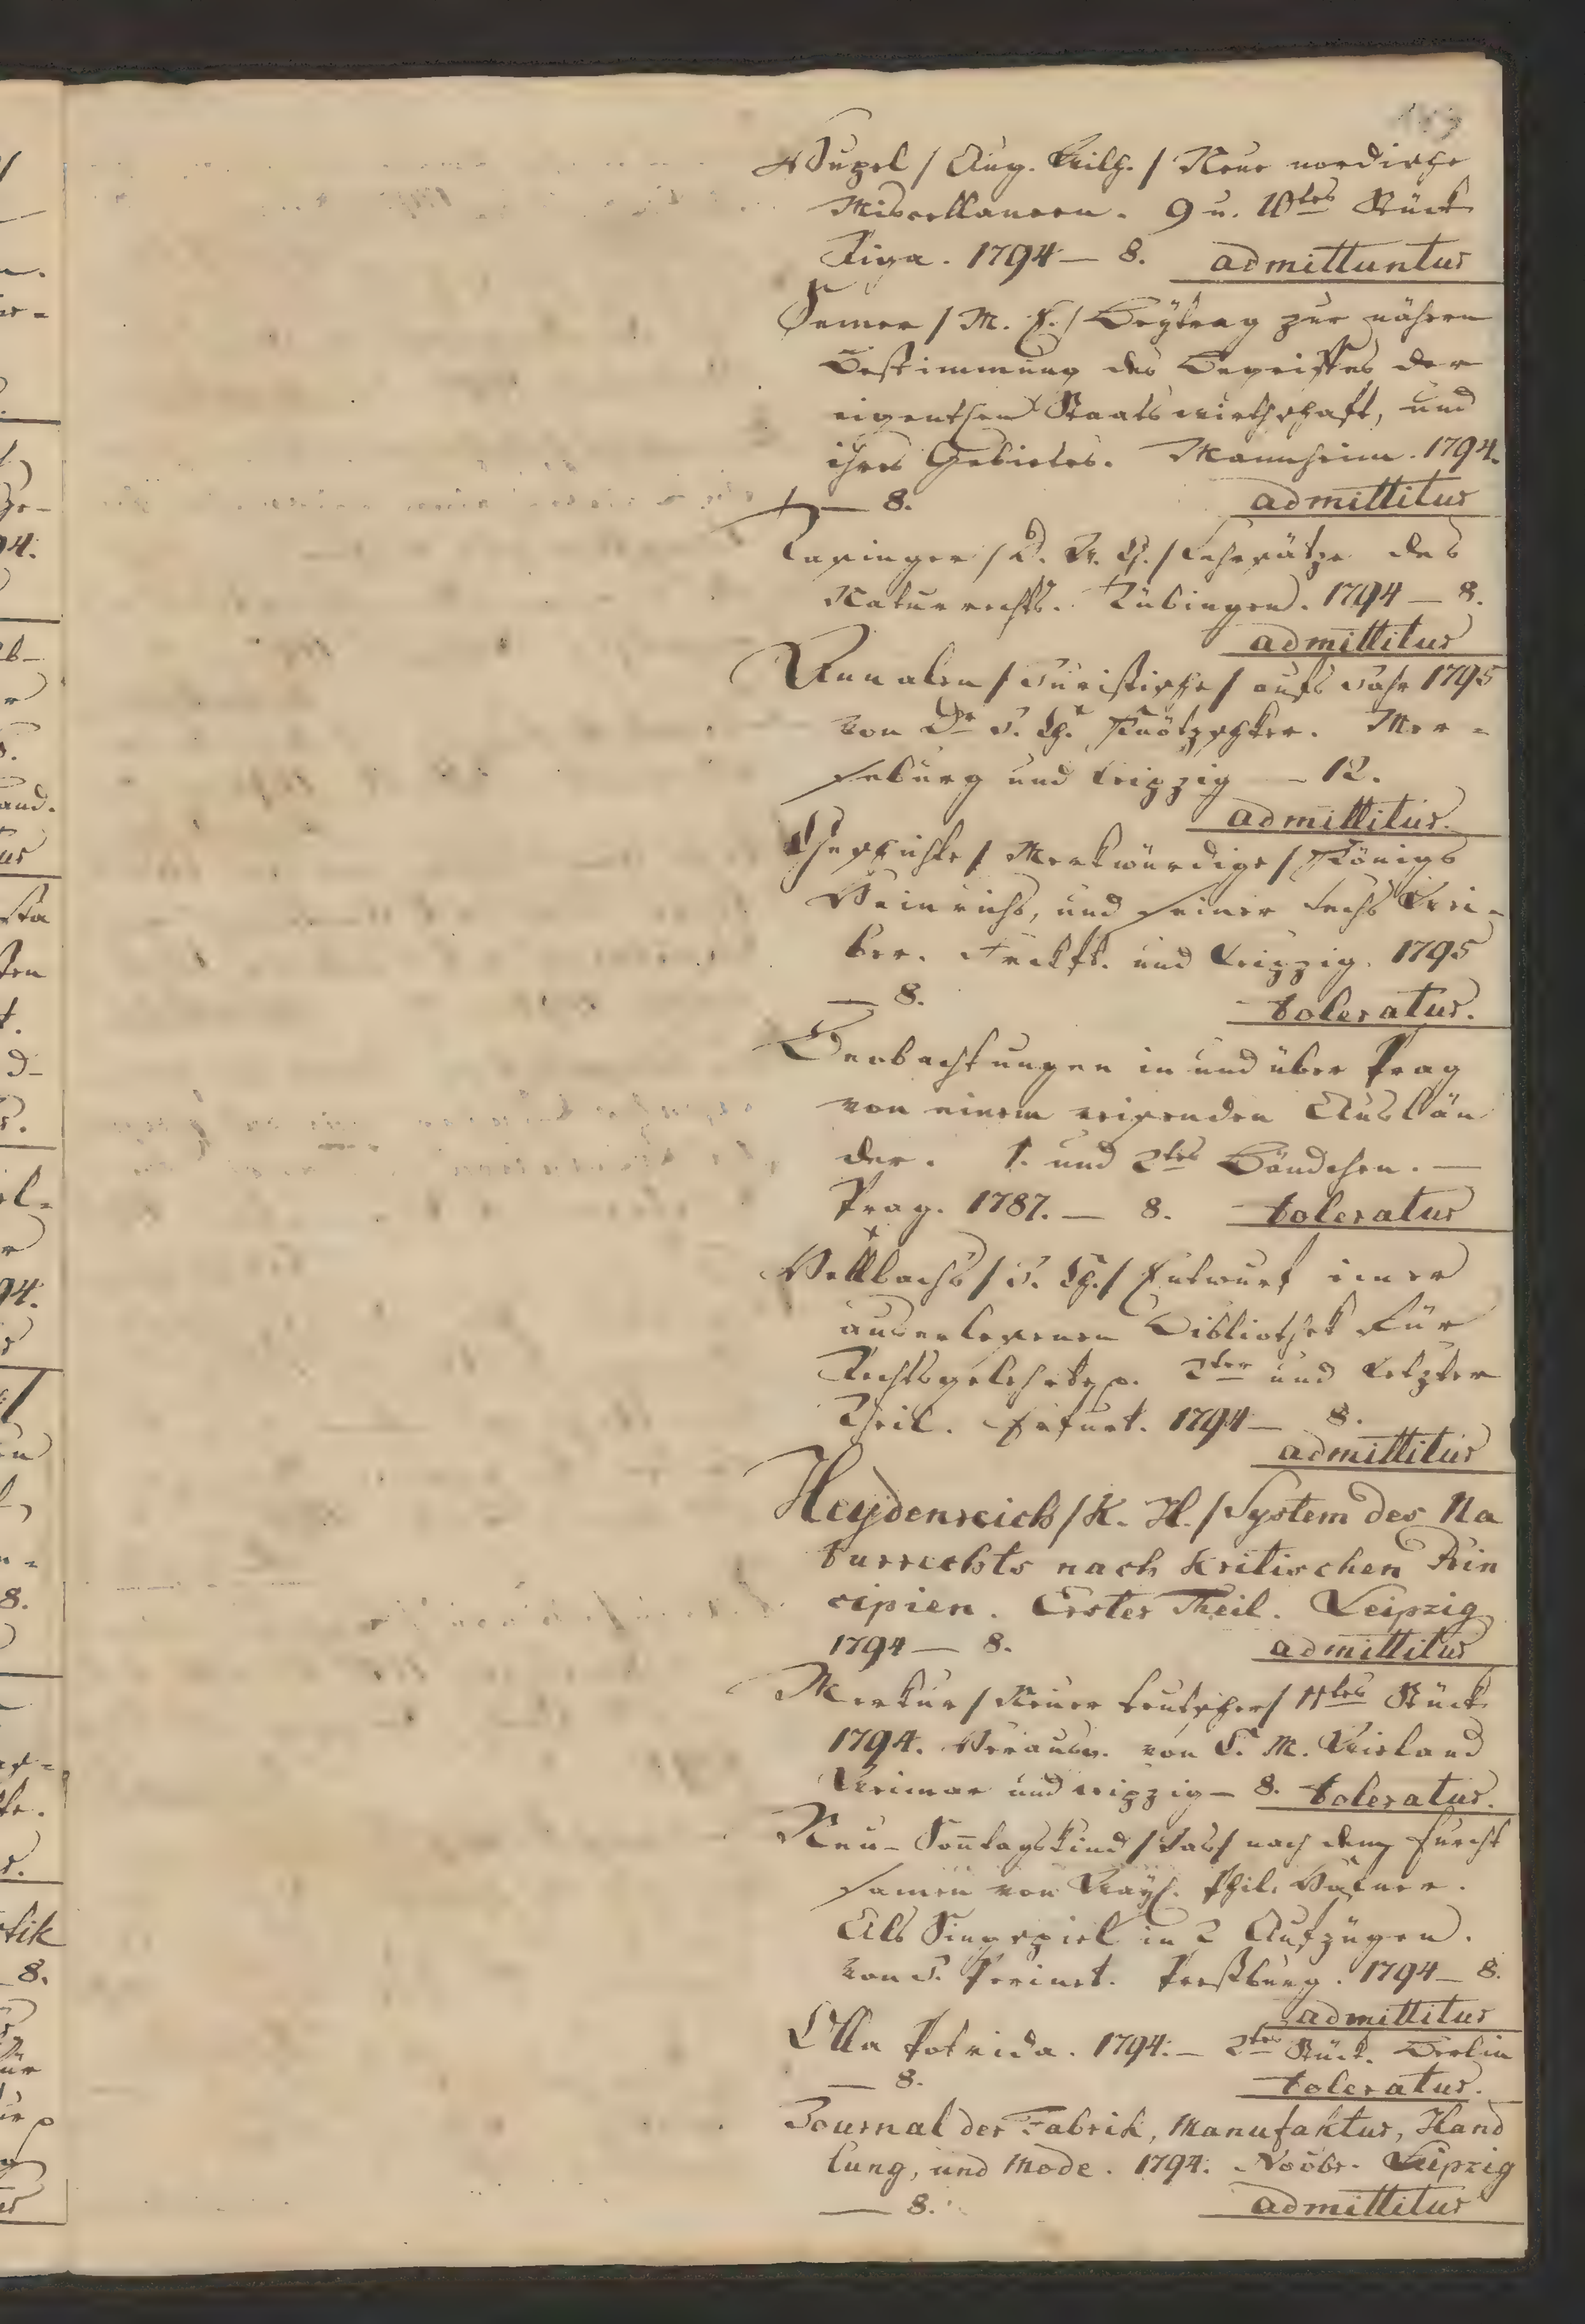 Hupel / Aug. Wilh. / Neue nordische
Miscellaneen. 9 u. 10tes Stück
Riga. 1794 — 8. admittuntur
Semer / M. F. / Beÿtrag zur nähern
Bestimmung des Begriffes der
eigentlen Staatswirthschaft, und
ihres Gebietes. Mannheim. 1794.
— 8. admittitur
Tafinger / D. W. G. / Lehrsätze des
Naturrechts. Tübingen. 1794 — 8.
admittitur
Annalen / Juristische / aufs Jahr 1795
von Dr J. Ch. Knötzschker. Mer-
seburg und Leipzig — 12.
admittitur.
Geschichte / Merkwürdige / Königs
Heinrichs, und seiner sechs Wei-
ber. Frckft. und Leipzig. 1795
— 8. toleratur.
Beobachtungen in und über Prag
von einem reisenden Auslän
der. 1. und 2tes Bändchen. —
Prag. 1787. — 8. toleratur
Hellbachs / J. Ch. / Entwurf einer
auserlesenen Bibliothek für
Rechtsgelehrte p. 2ter und letzter
Theil. Erfurt. 1794 — 8.
admittitur
Heydenreich / K. H. / System des Na
turrechts nach kritischen Prin
cipien. Erster Theil. Leipzig
1794 — 8. admittitur
Merkur / Neuer teutscher / 11tes Stück
1794. Herausg. von C. M. Wieland
Weimar und Leipzig — 8. toleratur.
Neu-Sontagskind / Das / nach dem furcht
samen von Weÿl. Phil. Hafner.
Als Singspiel in 2 Aufzügen.
von J. Perinet. Preßburg. 1794 — 8.
admittitur
Olla Potrida. 1794. — 2tes Stück. Berlin
— 8. toleratur.
Journal der Fabrik, Manufaktur, Hand
lung, und Mode. 1794. Novbr. Leipzig
— 8. admittitur